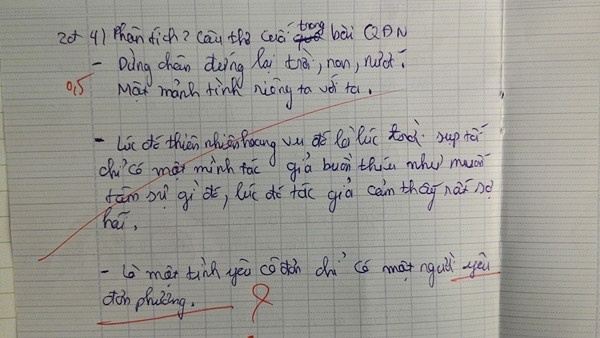 2đ 4) Phân tích 2 câu thơ cuối trong bài QĐN
- Dừng chân đứng lại trời, non, nước.
0,5
Một mảnh tình riêng ta với ta.
- Lúc đó thiên nhiên hoang vu đó là lúc trời sụp tối
chỉ có một mình tác giả buồn thiu như muốn
tâm sự gì đó, lúc đó tác giả cảm thấy rất sợ
hãi.
- Là một tình yêu cô đơn chỉ có một người yêu
đơn phương.